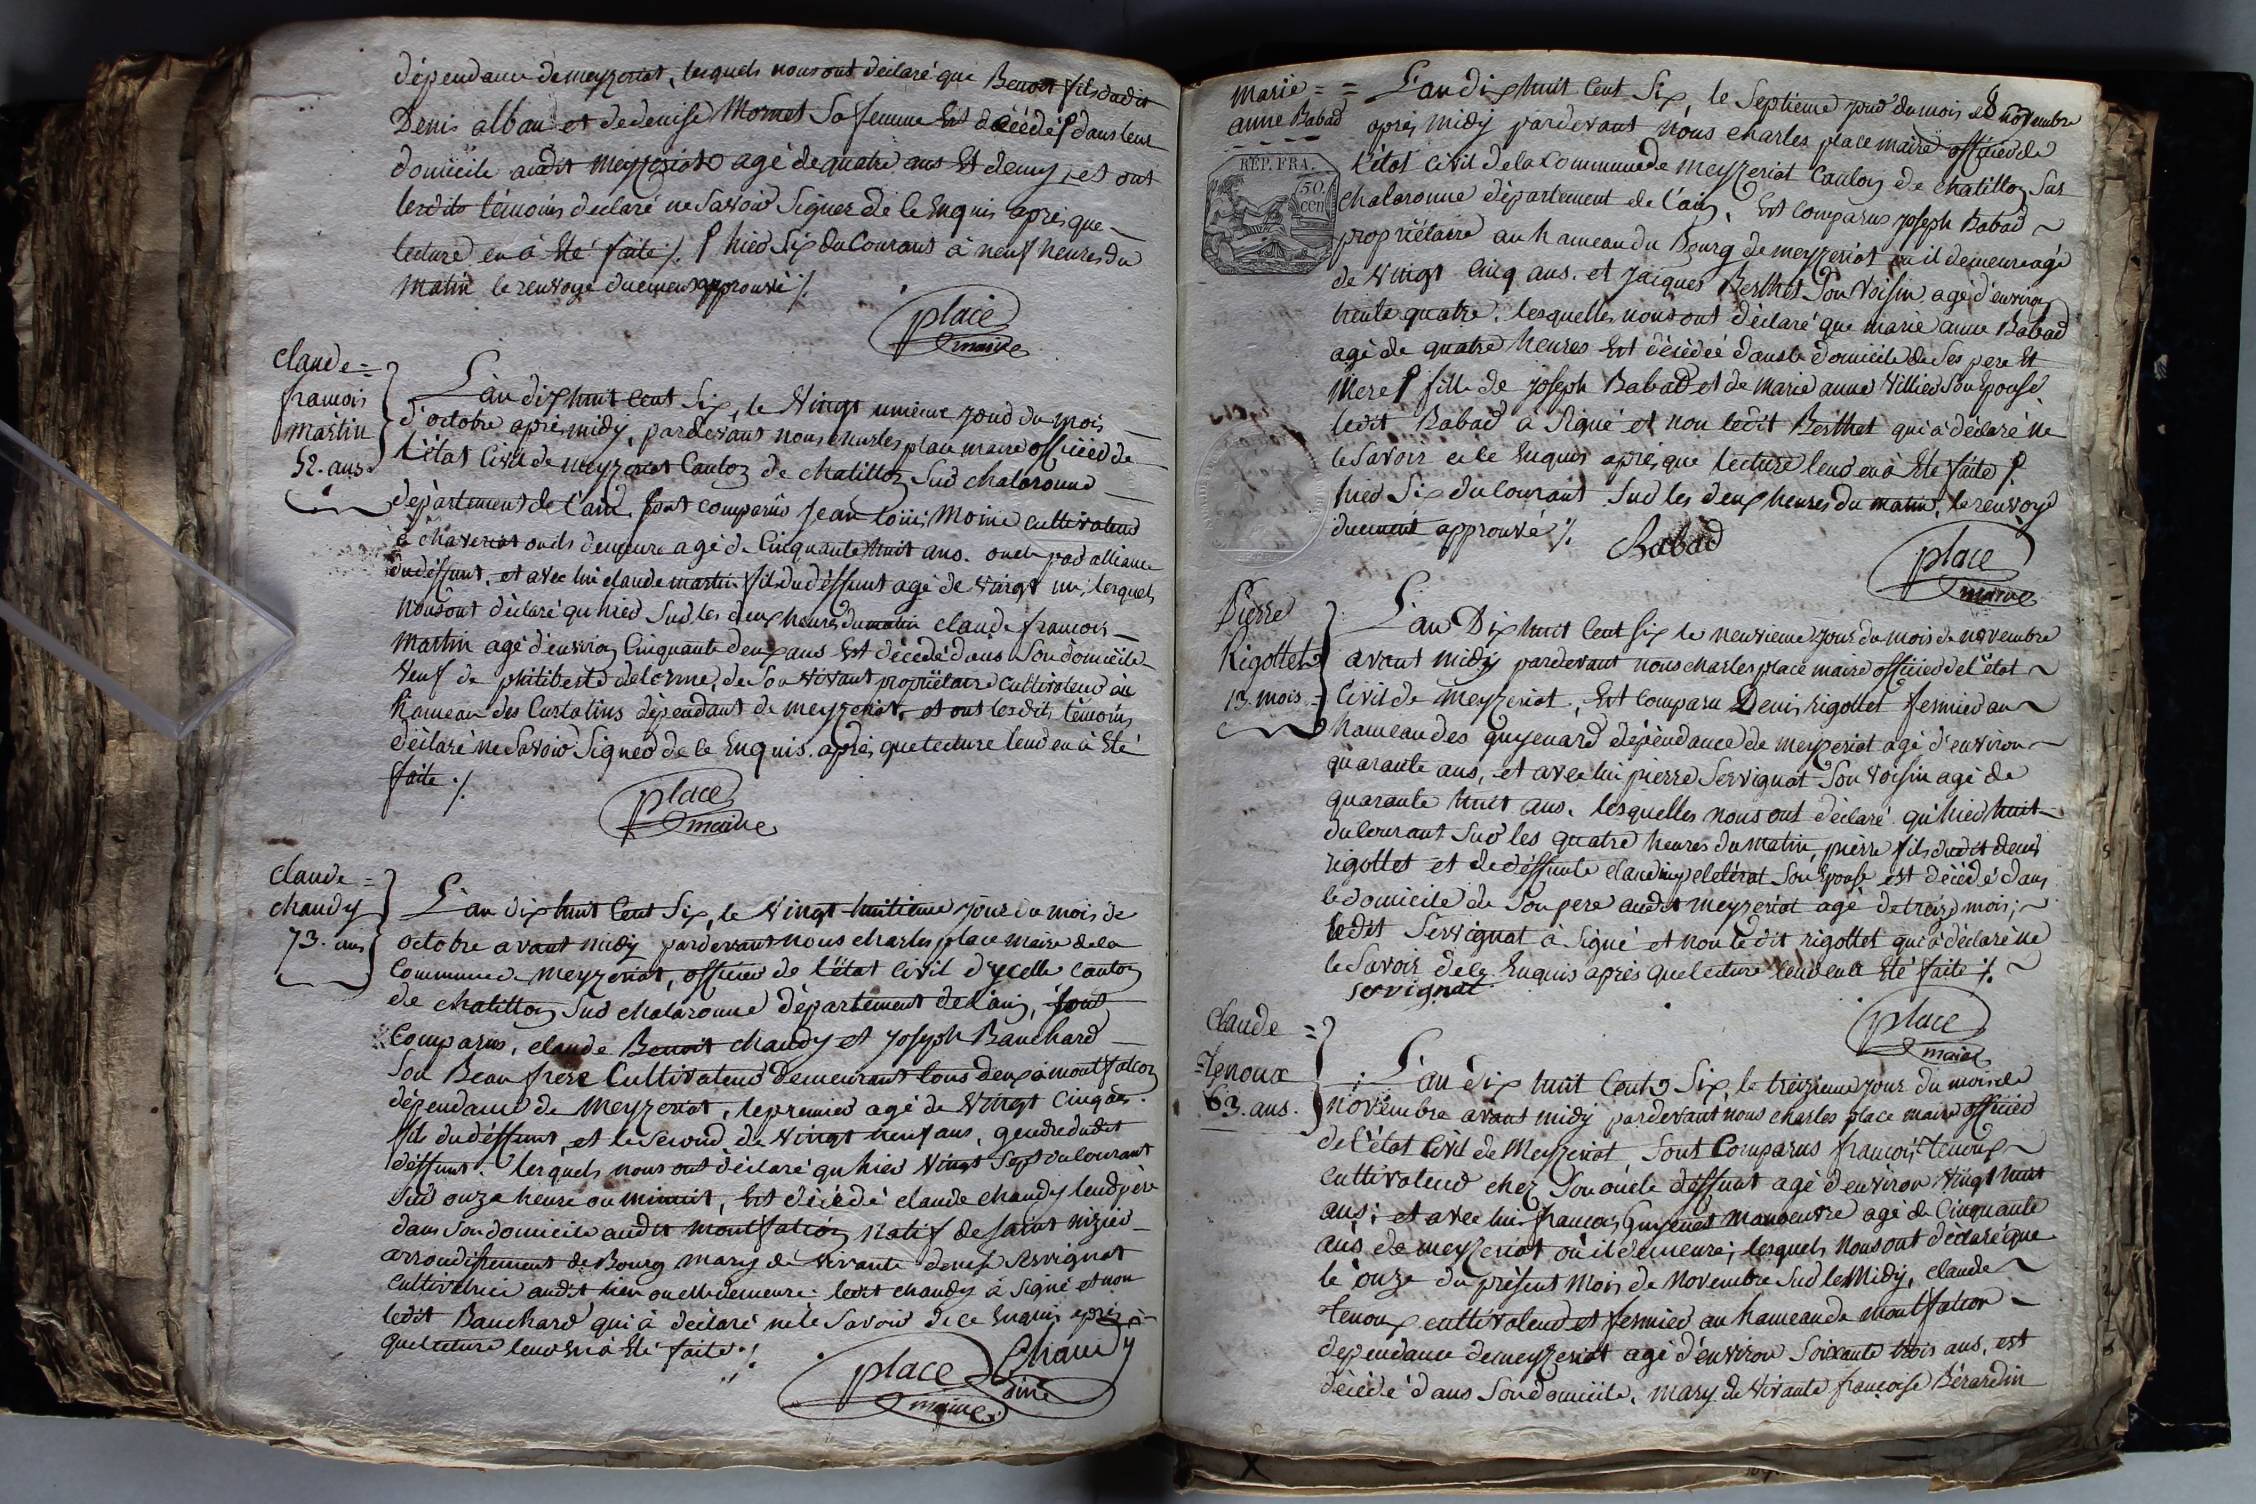 dépendance de meyzeriat, lesquels nous ont déclaré que Benoit fils dudit
Denis alban et de denise Mornet Sa femme Est décédé dans leur
domicile audit meyzeriat agé de quatre ans Et demy, et ont
lesdits témoins declaré ne Savoir Signer de ce Enquis après que
lecture en à Eté faite /. hier Six du Courant à neuf heures du
Matin le renvoye duement approuvé /.
place
maire
Claude =
francois
Martin
52. ans
L'an dix huit Cent Six, le Vingt unieme jour du mois
d'octobre après midy, pardevant nous charles place maire officier de
L'état Civil de meyzeriat Canton de chatillon Sur chalaronne
département de l'ain, Sont comparus Jean loüis Moine cultivateur
à chaveriat ou ils demeure agé de Cinquante huit ans. oncle par alliance
du deffunt, et avec lui claude martin fils du deffunt agé de Vingt un, lesquels
Nous ont déclaré qu'hier Sur les deux heures du matin claude francois
Martin agé d'environ Cinquante deux ans Est décédé dans Son domicile
Veuf de philiberte delorme, de Son Vivant propriétaire cultivateur au
hameau des Curtalins dépendant de meyzeriat, et ont lesdits témoins
déclaré ne Savoir Signer de Ce Enquis. après que lecture leur en à Eté
faite ./.
place
maire
Claude =
chaudy
73. ans
L'an dix huit Cent Six, le Vingt huitieme jour du mois de
octobre avant midy pardevant nous charles place maire de la
Commune de Meyzeriat, officier de l'état Civil d'ycelle canton
de chatillon Sur chalaronne département de l'ain, Sont
Comparus, claude Benoit chaudy et Joseph Bauchard
Son Beau frere Cultivateur demeurant tous deux à montfalcon
dépendance de Meyzeriat, le premier agé de Vingt Cinq ans.
fils du deffunt, et le Second de Vingt neuf ans, gendre dudit
deffunt. lesquels nous ont déclaré qu'hier Vingt Sept du Courant
Sur onze heure ou minuit, Est décédé claude chaudy leur père
dans Son domicile audit montfalcon Natif de Saint nizier
arrondissement de Bourg mary de Vivante denise Servignat
Cultivatrice audit lieu ou elle demeure. ledit chaudy à Signé et non
ledit Bauchard qui à déclaré ne le Savoir de ce Enquis après
que lecture leur En à Eté faite ./.
Chaudy
place
maire
Marie =
anne Babad
REP. FRA.
50
cen
L'an dix huit Cent Six, le Septieme jour du mois de novembre
après midy pardevant Nous charles place maire officier de
L'état Civil de la Commune de Meyzeriat Canton de chatillon Sur
chalaronne département de l'ain, Est comparus joseph Babad
propriétaire au hameau du Bourg de meyzeriat ou il demeure agé
de Vingt Cinq ans. et Jacques Berthet Son Voisin agé d'environ
trente quatre. lesquelles nous ont déclaré que marie anne Babad
agé de quatre heures Est décédée dans le domicile de Ses pere Et
Mere fille de joseph Babad et de marie anne Villier Son Epouse.
ledit Babad à Signé et non ledit Berthet qui à déclaré ne
le Savoir de Ce Enquis après que lecture leur en à Eté faite
hier Six du Courant Sur les deux heures du matin, le renvoye
duement approuvé /.
Babad
place
maire
Pierre
Rigottet
13. mois =
L'an Dix huit Cent Six le neuvieme jour du mois de novembre
avant midy pardevant nous charles place maire officier de l'état
Civil de Meyzeriat, Est Comparu Denis rigottet fermier au
hameau des guyenard dépendance de meyzeriat agé d'environ
quarante ans, et avec lui pierre Servignat Son Voisin agé de
quarante huit ans. lesquelles nous ont déclaré qu'hier huit
du Courant Sur les quatre heures du Matin, pierre fils dudit denis
rigottet et de deffunte Son Epouse est décédé dans
le domicile de Son pere audit meyzeriat agé de treize mois;
ledit Servignat à Signé et non ledit rigottet qui à déclaré ne
le Savoir de ce Enquis après que lecture leur en à Eté faite /.
Servignat
place
maire
Claude =
=Tenoux
63. ans.
L'an dix huit Cents Six, le treizieme jour du mois de
novembre avant midy pardevant nous charles place maire officier
de l'état Civil de Meyzeriat Sont Comparus françois tenoux
cultivateur chez Son oncle deffunt agé d'environ Vingt huit
ans; et avec lui françois Guyenet manoeuvre agé de Cinquante
ans de meyzeriat où il demeure; lesquels Nous ont déclaré que
le onze du présent Mois de Novembre Sur le Midy, claude
tenoux cultivateur et fermier au hameau de montfalcon
dependance de meyzeriat agé d'environ Soixante trois ans, est
décédé dans Son domicile. mary de Vivante françoise Bérardin